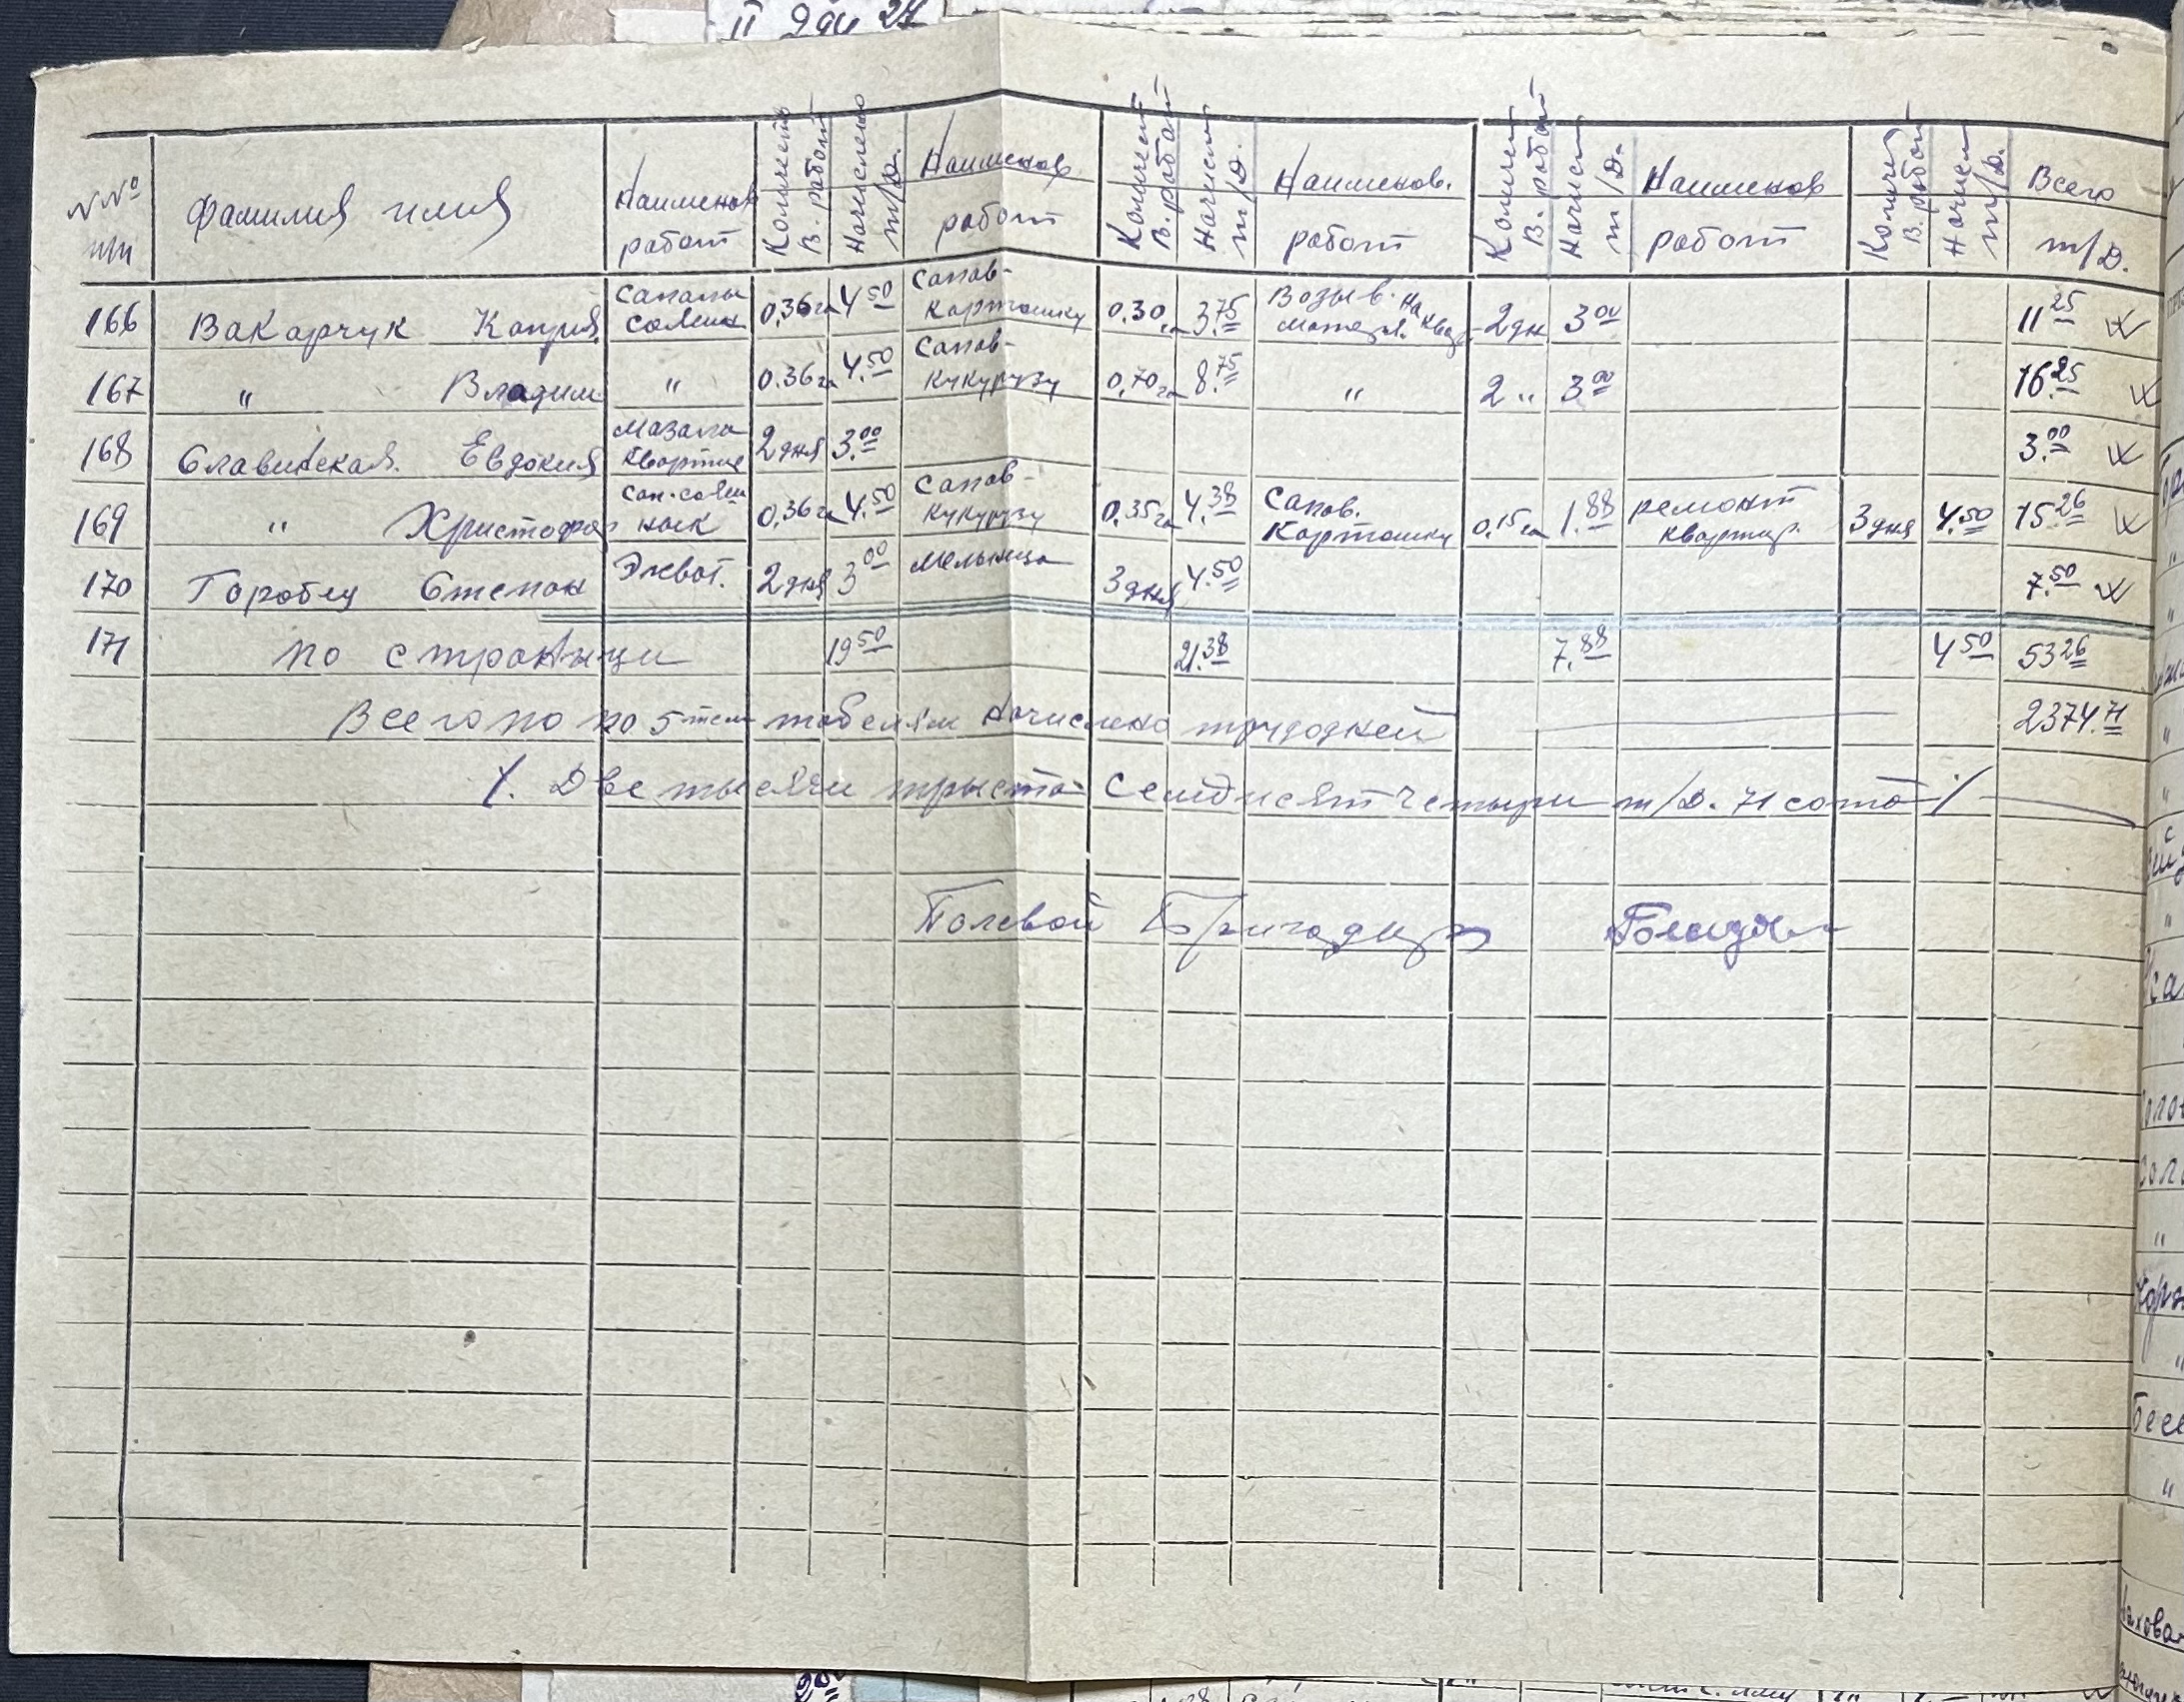 II
№№ п/п Фамилия имя Наименов работ Количеств В. работ Начислено т/д. Наименов. работ Количест В. работ Начислен т/д. Наименов. работ Количест В. работ Начислен т/д. Наименов работ Количест В. работ Начислен т/д. Всего т/д.
166 Вакарчук 0,36га 4.50 Сапов- Картошку 0.30 га 3.75 на 2дн 3.00 11.25
167 " Владим. " 0.36га 4.50 Сапов- Кукурузу 0,70га 8.75 " 2 " 3.00 16.25
168 Славинская. Евдокия Мазала Квартире 2дня 3.00 3.00
169 " Христофор 0,36га 4.50 Сапов- Кукурузу 0.35га 4.38 Сапов. Картошку 0,15га 1.88 ремонт квартир. 3дня 4.50 15.26
170 Горобец Степан 2дня 3.00 Мельница 3дня 4.50 7.50
171 по странице 19.50 21.38 7.88 4.50 53.26
Всего по 5ти табелям Начислено трудодней 2374.71
/. Две тысячи трыста Семдисят Четыри т/д. 71 сота /
Полевой Бригадир